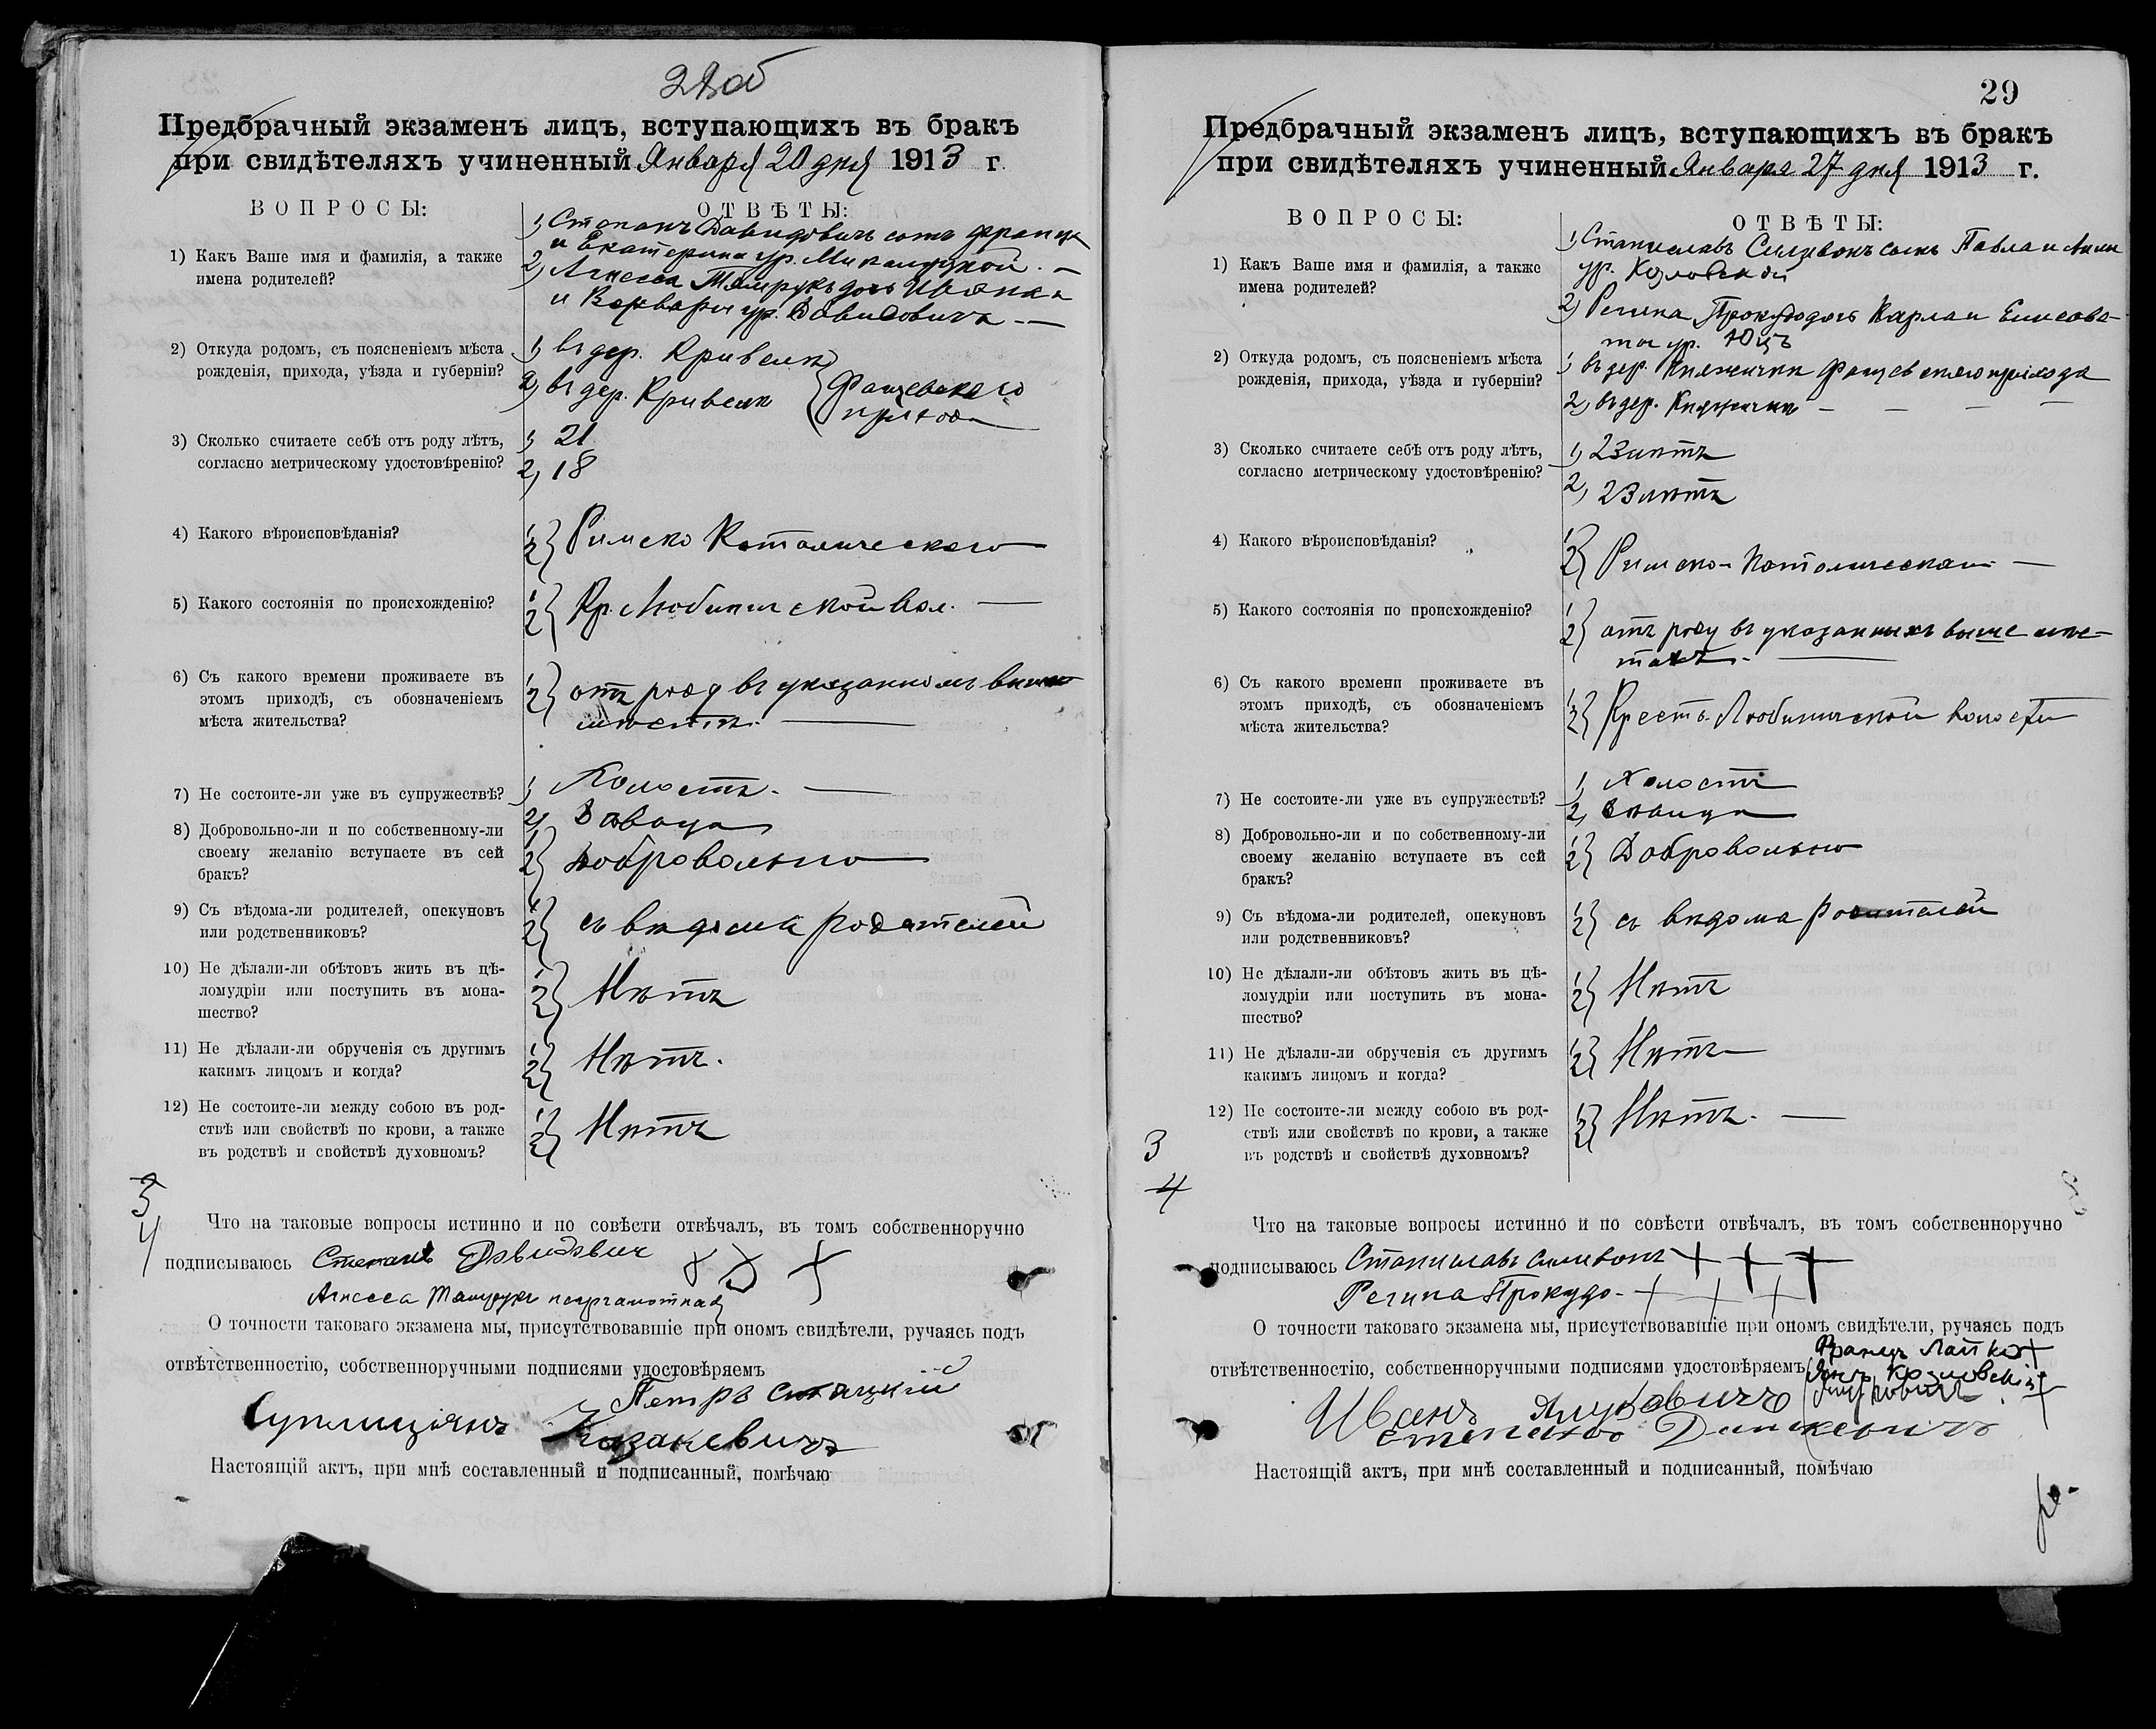 28об
Предбрачный экзаменъ лицъ, вступающихъ въ бракъ
при свидѣтеляхъ учиненный Января 20 дня 1913 г.
ВОПРОСЫ:
ОТВѢТЫ:
1) Какъ Ваше имя и фамилія, а также
имена родителей?
1) Степанъ Давидовичъ сынъ Франца
и Екатерины ур.
2) Агнесса дочь Ивана
и Варвары ур. Давидовичъ
2) Откуда родомъ, съ поясненіемъ мѣста
рожденія, прихода, уѣзда и губерніи?
1) въ дер. Кривели
2) въ дер. Кривели Фащевскаго
прихода
3) Сколько считаете себѣ отъ роду лѣтъ,
согласно метрическому удостовѣренію?
1) 21
2) 18
4) Какого вѣроисповѣданія?
1 2} Римско Католическаго
5) Какого состоянія по происхожденію?
1 2} Кр. Любиничской вол.
6) Съ какого времени проживаете въ
этомъ приходѣ, съ обозначеніемъ
мѣста жительства?
1 2} отъ роду въ указанномъ выше
мѣстѣ.
7) Не состоите-ли уже въ супружествѣ?
1) Холостъ.
2) Дѣвица
8) Добровольно-ли и по собственному-ли
своему желанію вступаете въ сей
бракъ?
1 2} Добровольно
9) Съ вѣдома-ли родителей, опекуновъ
или родственниковъ?
1 2} съ вѣдома родителей
10) Не дѣлали-ли обѣтовъ жить въ цѣ-
ломудріи или поступить въ мона-
шество?
1 2} Нѣтъ
11) Не дѣлали-ли обрученія съ другимъ
какимъ лицомъ и когда?
1 2} Нѣтъ.
12) Не состоите-ли между собою въ род-
ствѣ или свойствѣ по крови, а также
въ родствѣ и свойствѣ духовномъ?
1 2} Нѣтъ
3
4
Что на таковые вопросы истинно и по совѣсти отвѣчалъ, въ томъ собственноручно
подписываюсь Степанъ Давидович
Агнесса неграмотная
О точности таковаго экзамена мы, присутствовавшіе при ономъ свидѣтели, ручаясь подъ
отвѣтственностію, собственноручными подписями удостовѣряемъ
Петръ
Суплиціянъ Казакевичъ
Настоящій актъ, при мнѣ составленный и подписанный, помѣчаю
29
Предбрачный экзаменъ лицъ, вступающихъ въ бракъ
при свидѣтеляхъ учиненный Января 27 дня 1913 г.
ВОПРОСЫ:
ОТВѢТЫ:
1) Какъ Ваше имя и фамилія, а также
имена родителей?
1) Станиславъ Силивонъ сынъ Павла и Анны
ур. Козловской
2) Регина Прокудо дочь Карла и Елисаве-
ты ур. Юцъ
2) Откуда родомъ, съ поясненіемъ мѣста
рожденія, прихода, уѣзда и губерніи?
1) въ дер. Княжички Фащевскаго прихода
2) въ дер. Княжички
3) Сколько считаете себѣ отъ роду лѣтъ,
согласно метрическому удостовѣренію?
1) 23 лѣтъ
2) 23 лѣтъ
4) Какого вѣроисповѣданія?
1 2} Римско-Католическаго
5) Какого состоянія по происхожденію?
1 2} отъ роду въ указанныхъ выше мѣс-
тахъ.
6) Съ какого времени проживаете въ
этомъ приходѣ, съ обозначеніемъ
мѣста жительства?
1 2} Крест. Любиничской волости
7) Не состоите-ли уже въ супружествѣ?
1) Холостъ
2) дѣвица
8) Добровольно-ли и по собственному-ли
своему желанію вступаете въ сей
бракъ?
1 2} Добровольно
9) Съ вѣдома-ли родителей, опекуновъ
или родственниковъ?
1 2} съ вѣдома родителей
10) Не дѣлали-ли обѣтовъ жить въ цѣ-
ломудріи или поступить въ мона-
шество?
1 2} Нѣтъ
11) Не дѣлали-ли обрученія съ другимъ
какимъ лицомъ и когда?
1 2} Нѣтъ
12) Не состоите-ли между собою въ род-
ствѣ или свойствѣ по крови, а также
въ родствѣ и свойствѣ духовномъ?
1 2} Нѣтъ.
3
4
Что на таковые вопросы истинно и по совѣсти отвѣчалъ, въ томъ собственноручно
подписываюсь Станиславъ Силивонъ + + +
Регина Прокудо + + +
О точности таковаго экзамена мы, присутствовавшіе при ономъ свидѣтели, ручаясь подъ
отвѣтственностію, собственноручными подписями удостовѣряемъ
Францъ Лапко +
Козловскій
Иванъ
Степанъ
Настоящій актъ, при мнѣ составленный и подписанный, помѣчаю